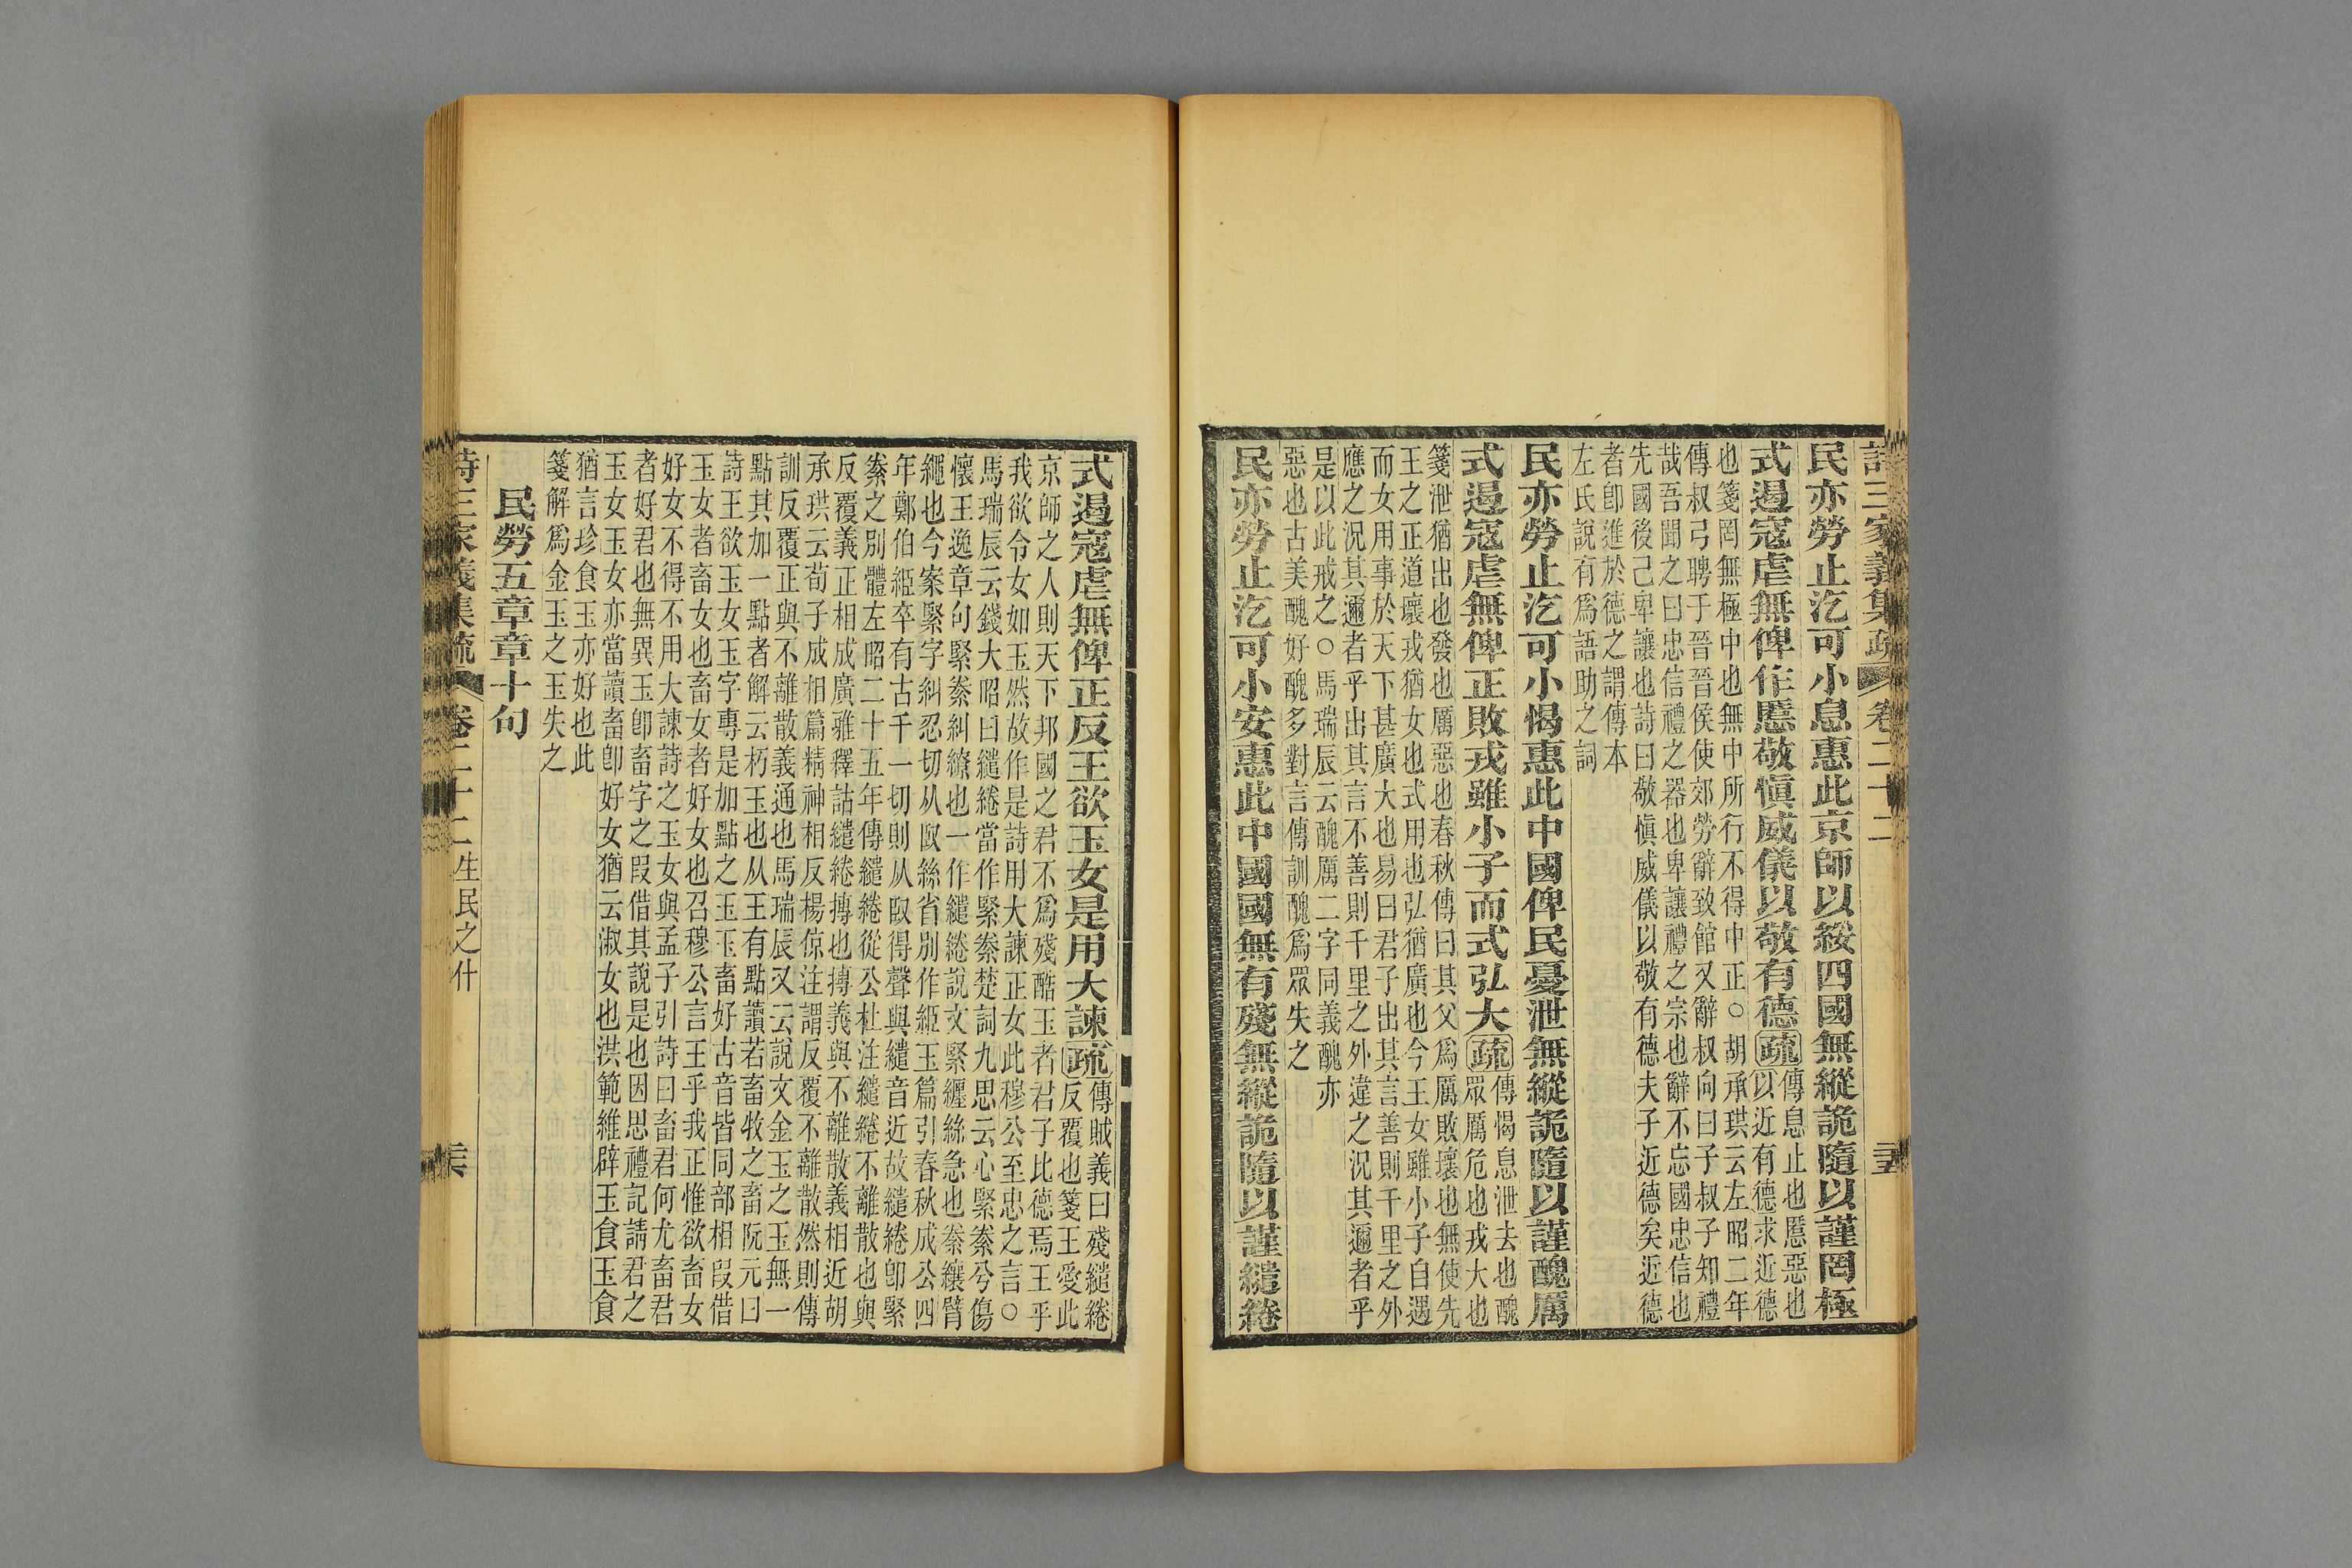 詩三家義集疏 卷二十二 二十五
民亦勞止汔可小息惠此京師以綏四國無縱詭隨以謹罔極
式遏寇虐無俾作慝敬愼威儀以敬有德疏傳息止也慝惡也
以近有德求近德
也箋罔無極中也無中所行不得中正○胡承珙云左昭二年
傳叔弓聘于晉晉侯使郊勞辭致館又辭叔向曰子叔子知禮
哉吾聞之曰忠信禮之器也卑讓禮之宗也辭不忘國忠信也
先國後己卑讓也詩曰敬愼威儀以敬有德夫子近德矣近德
者卽進於德之謂傳本
左氏說有爲語助之詞
民亦勞止汔可小愒惠此中國俾民憂泄無縱詭隨以謹醜厲
式遏寇虐無俾正敗戎雖小子而式弘大疏傳愒息泄去也醜
眾厲危也戎大也
箋泄猶出也發也厲惡也春秋傳曰其父爲厲敗壞也無使先
王之正道壞戎猶女也式用也弘猶廣也今王女雖小子自遇
而女用事於天下甚廣大也易曰君子出其言善則千里之外
應之況其邇者乎出其言不善則千里之外違之況其邇者乎
是以此戒之○馬瑞辰云醜厲二字同義醜亦
惡也古美醜好醜多對言傳訓醜爲眾失之
民亦勞止汔可小安惠此中國國無有殘無縱詭隨以謹繾綣
式遏寇虐無俾正反王欲玉女是用大諫疏傳賊義曰殘繾綣
反覆也箋王愛此
京師之人則天下邦國之君不爲殘酷玉者君子比德焉王乎
我欲令女如玉然故作是詩用大諫正女此穆公至忠之言○
馬瑞辰云錢大昭曰繾綣當作緊絭楚詞九思云心緊絭兮傷
懷王逸章句緊絭糾繚也一作繾綣說文緊纏絲急也絭纕臂
繩也今案緊字糾忍切从臤絲省別作緪玉篇引春秋成公四
年鄭伯緪卒有古千一切則从臤得聲與繾音近故繾綣卽緊
絭之別體左昭二十五年傳繾綣從公杜注繾綣不離散也與
反覆義正相成廣雅釋詁繾綣搏也搏義與不離散義相近胡
承珙云荀子成相篇精神相反楊倞注謂反覆不離散然則傳
訓反覆正與不離散義通也馬瑞辰又云說文金玉之玉無一
點其加一點者解云朽玉也从王有點讀若畜牧之畜阮元曰
詩王欲玉女玉字專是加點之玉玉畜好古音皆同部相叚借
玉女者畜女也畜女者好女也召穆公言王乎我正惟欲畜女
好女不得不用大諫詩之玉女與孟子引詩曰畜君何尤畜君
者好君也無異玉卽畜字之叚借其說是也因思禮記請君之
玉女玉女亦當讀畜卽好女猶云淑女也洪範維辟玉食玉食
猶言珍食玉亦好也此
箋解爲金玉之玉失之
民勞五章章十句
詩三家義集疏 卷二十二 生民之什 二十六